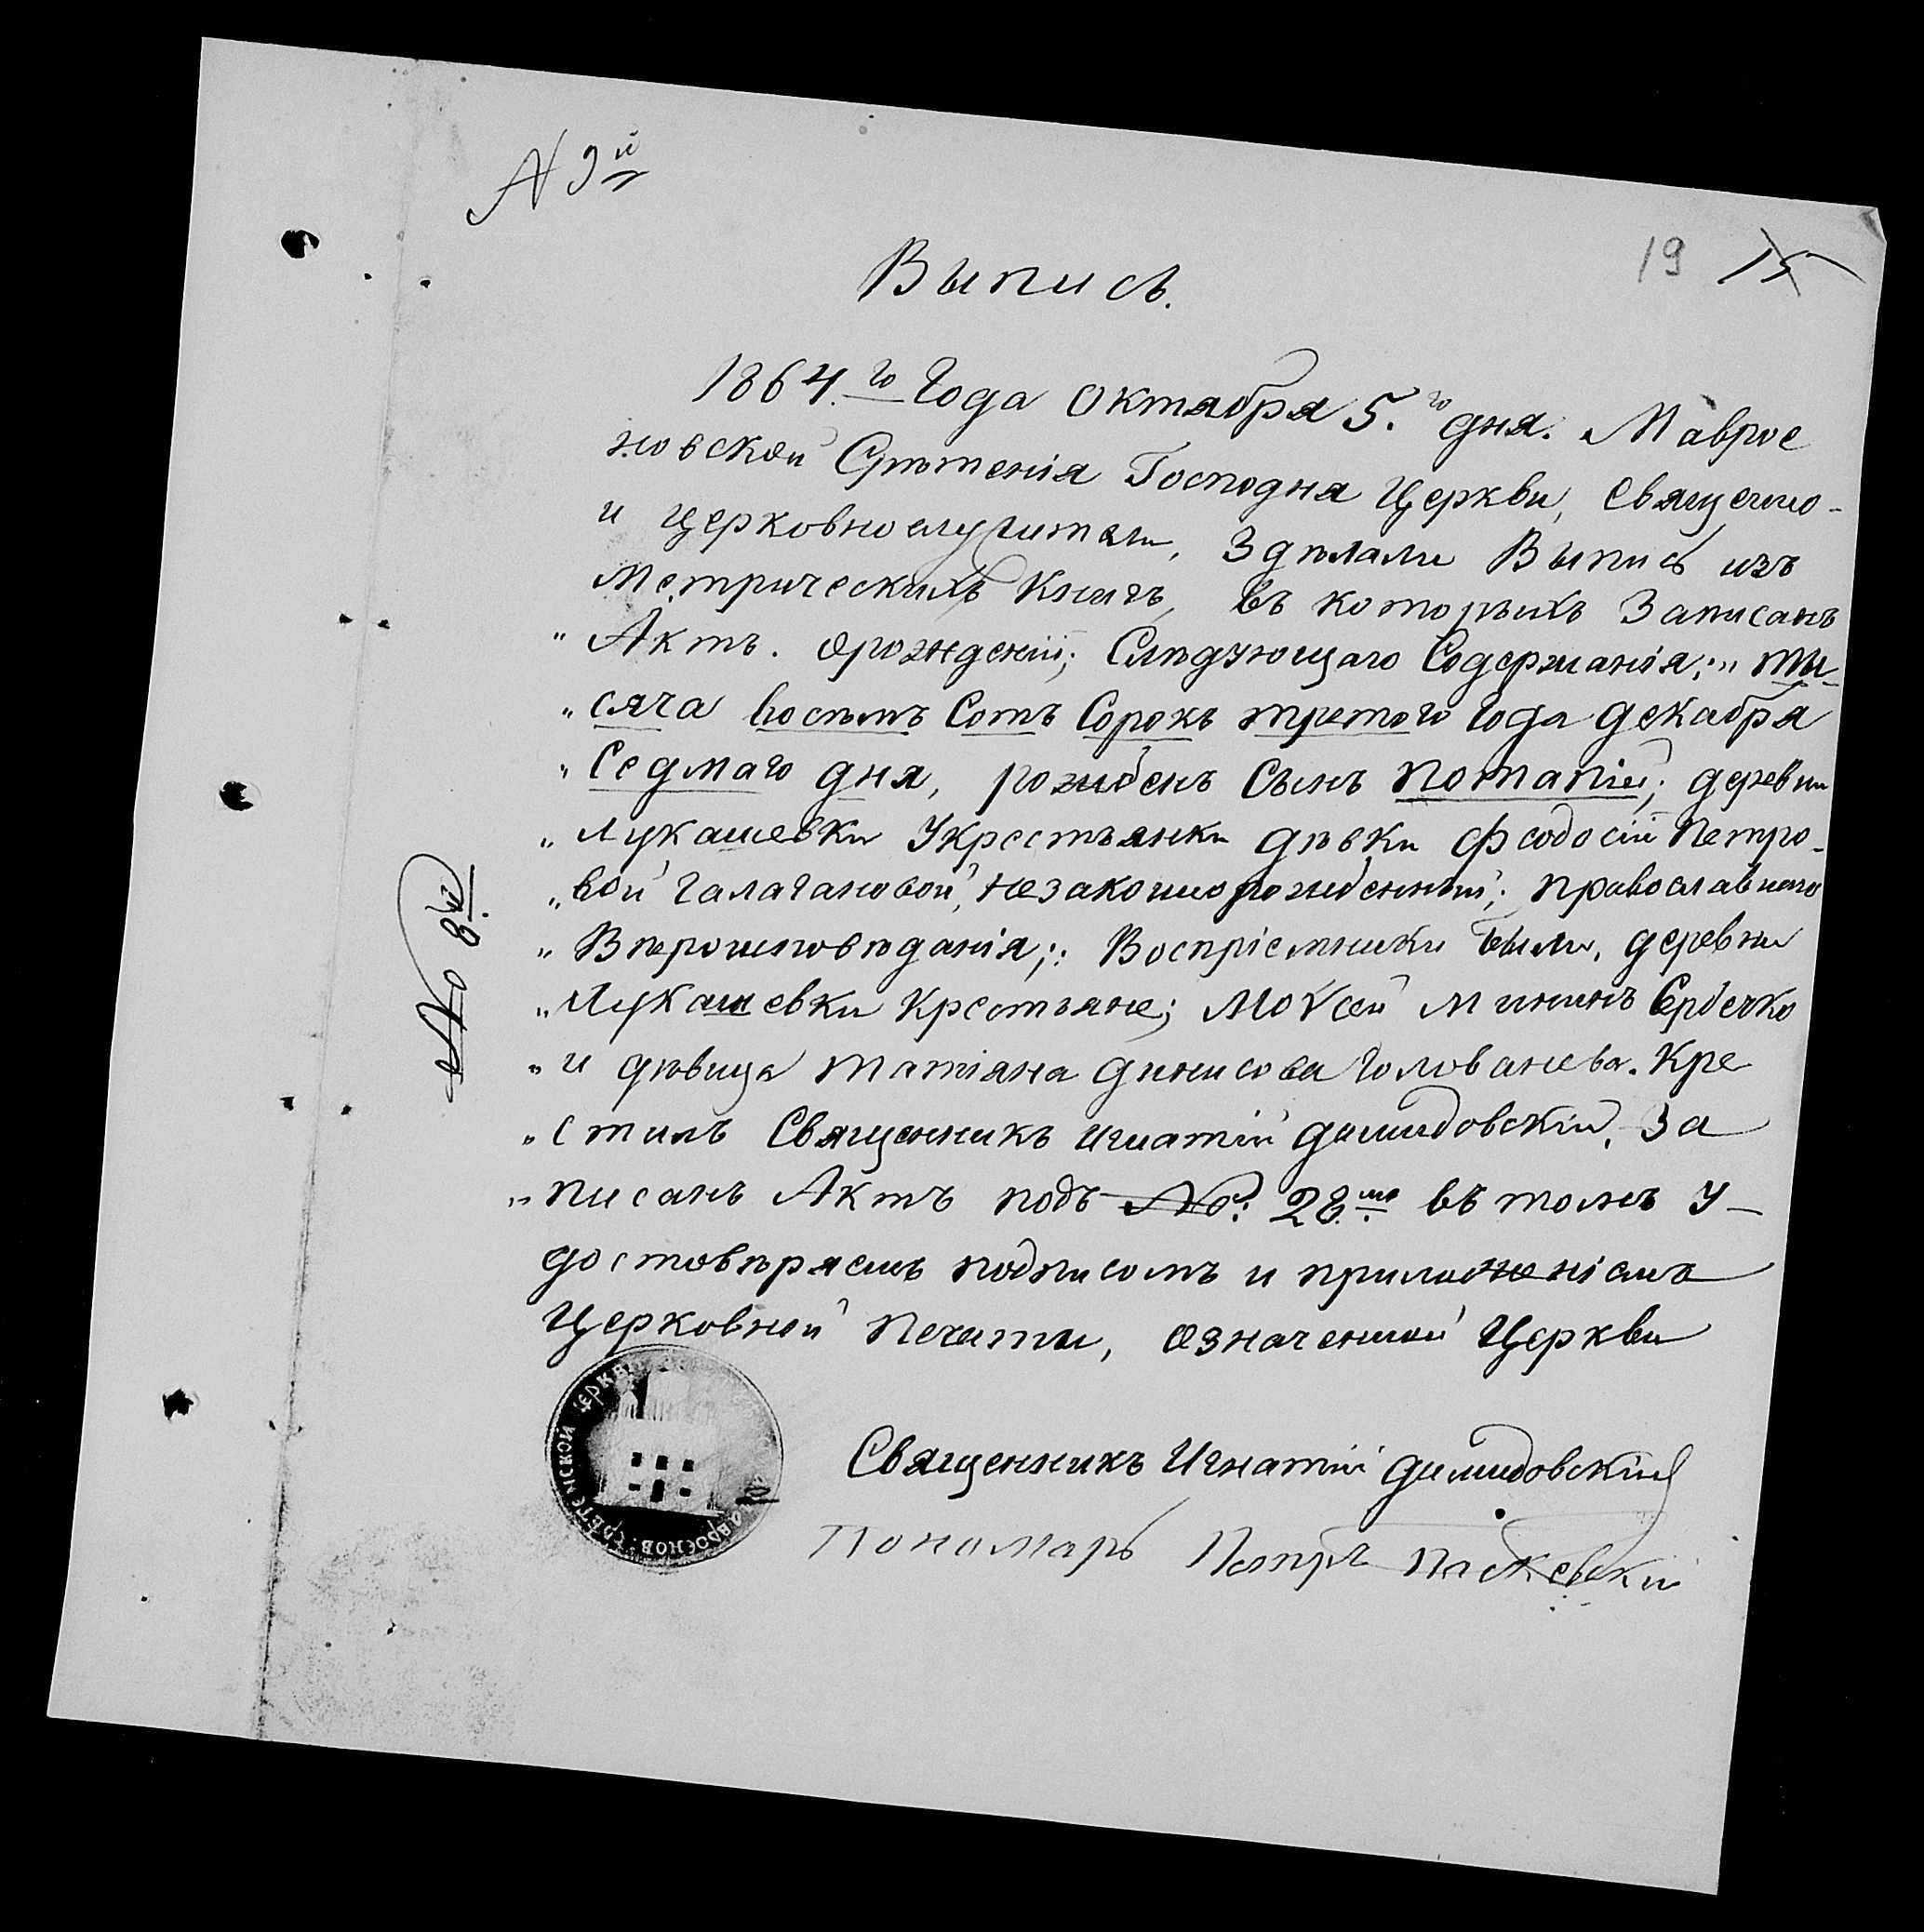 № 9й
19 15
Выпись.
1864.го Года Октября 5.го дня. Мавроe
новской Срѣтенія Господня Церкви, Священно-
и церковнослужители, Здѣлали Выпись изъ
Метрическихъ Книгъ, въ которыхъ Записанъ
" Актъ. орожденіи; Слѣдующаго Содержанія; " ты-
" сяча восѣмъ Сотъ Сорокъ третого Года декабря
" Седмаго дня, рожденъ Сынъ Потапій; деревни
" Лукашевки Укрестьянки дѣвки Феодосіи Петро-
" вой Галагановой, незаконнорожденный; православнаго
" Вѣроисповѣданія; Воспріемники были, деревни
" Лукашевки Крестьяне; Моѵсей Мининъ Сердечко
" и дѣвица Татіана Динисова Голованева. Кре
" стилъ Священникъ Игнатій Димидовскій, За
" писанъ Актъ подъ №: 28.мъ въ томъ У-
достовѣряемъ подписомъ и приложеніемъ
Церковной Печати, означенной Церкви
Священникъ Игнатій Димидовскій
Пономарь Петръ Паскевскій
№ 8й
СРѢТЕНСКОЙ ЦЕРКВ